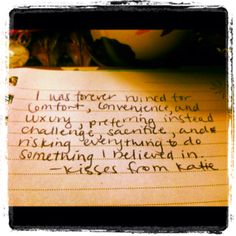 I was forever ruined for
comfort, convenience, and
luxury, preferring instead
challenge, sacrifice, and
risking everything to do
something I believed in.
-kisses from katie